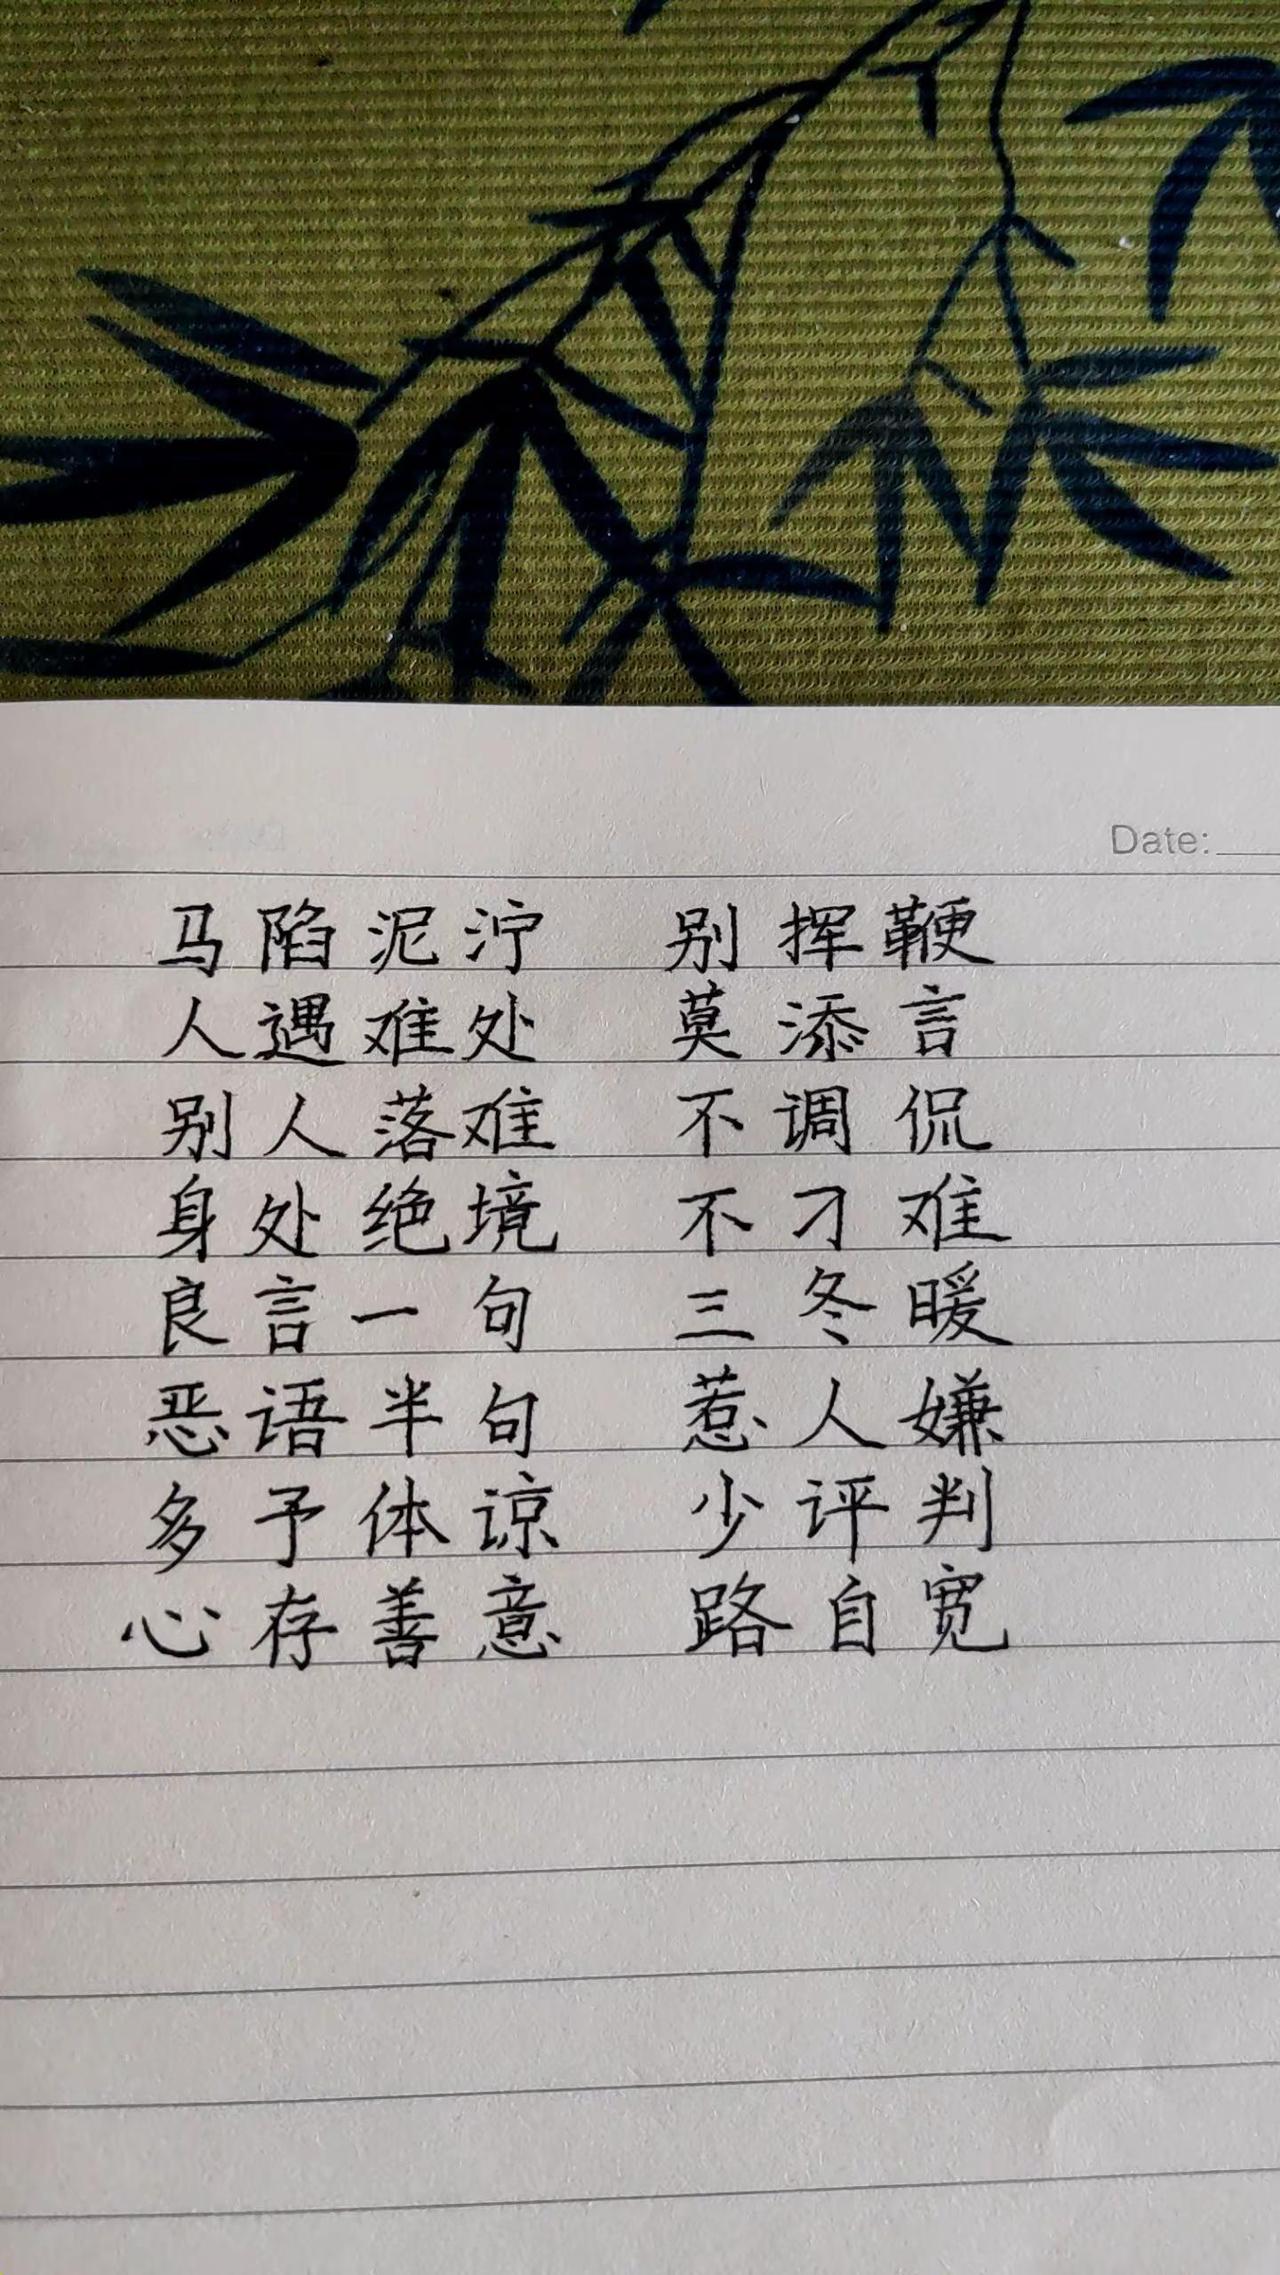 Date:
马陷泥泞 别挥鞭
人遇难处 莫添言
别人落难 不调侃
身处绝境 不刁难
良言一句 三冬暖
恶语半句 惹人嫌
多予体谅 少评判
心存善意 路自宽